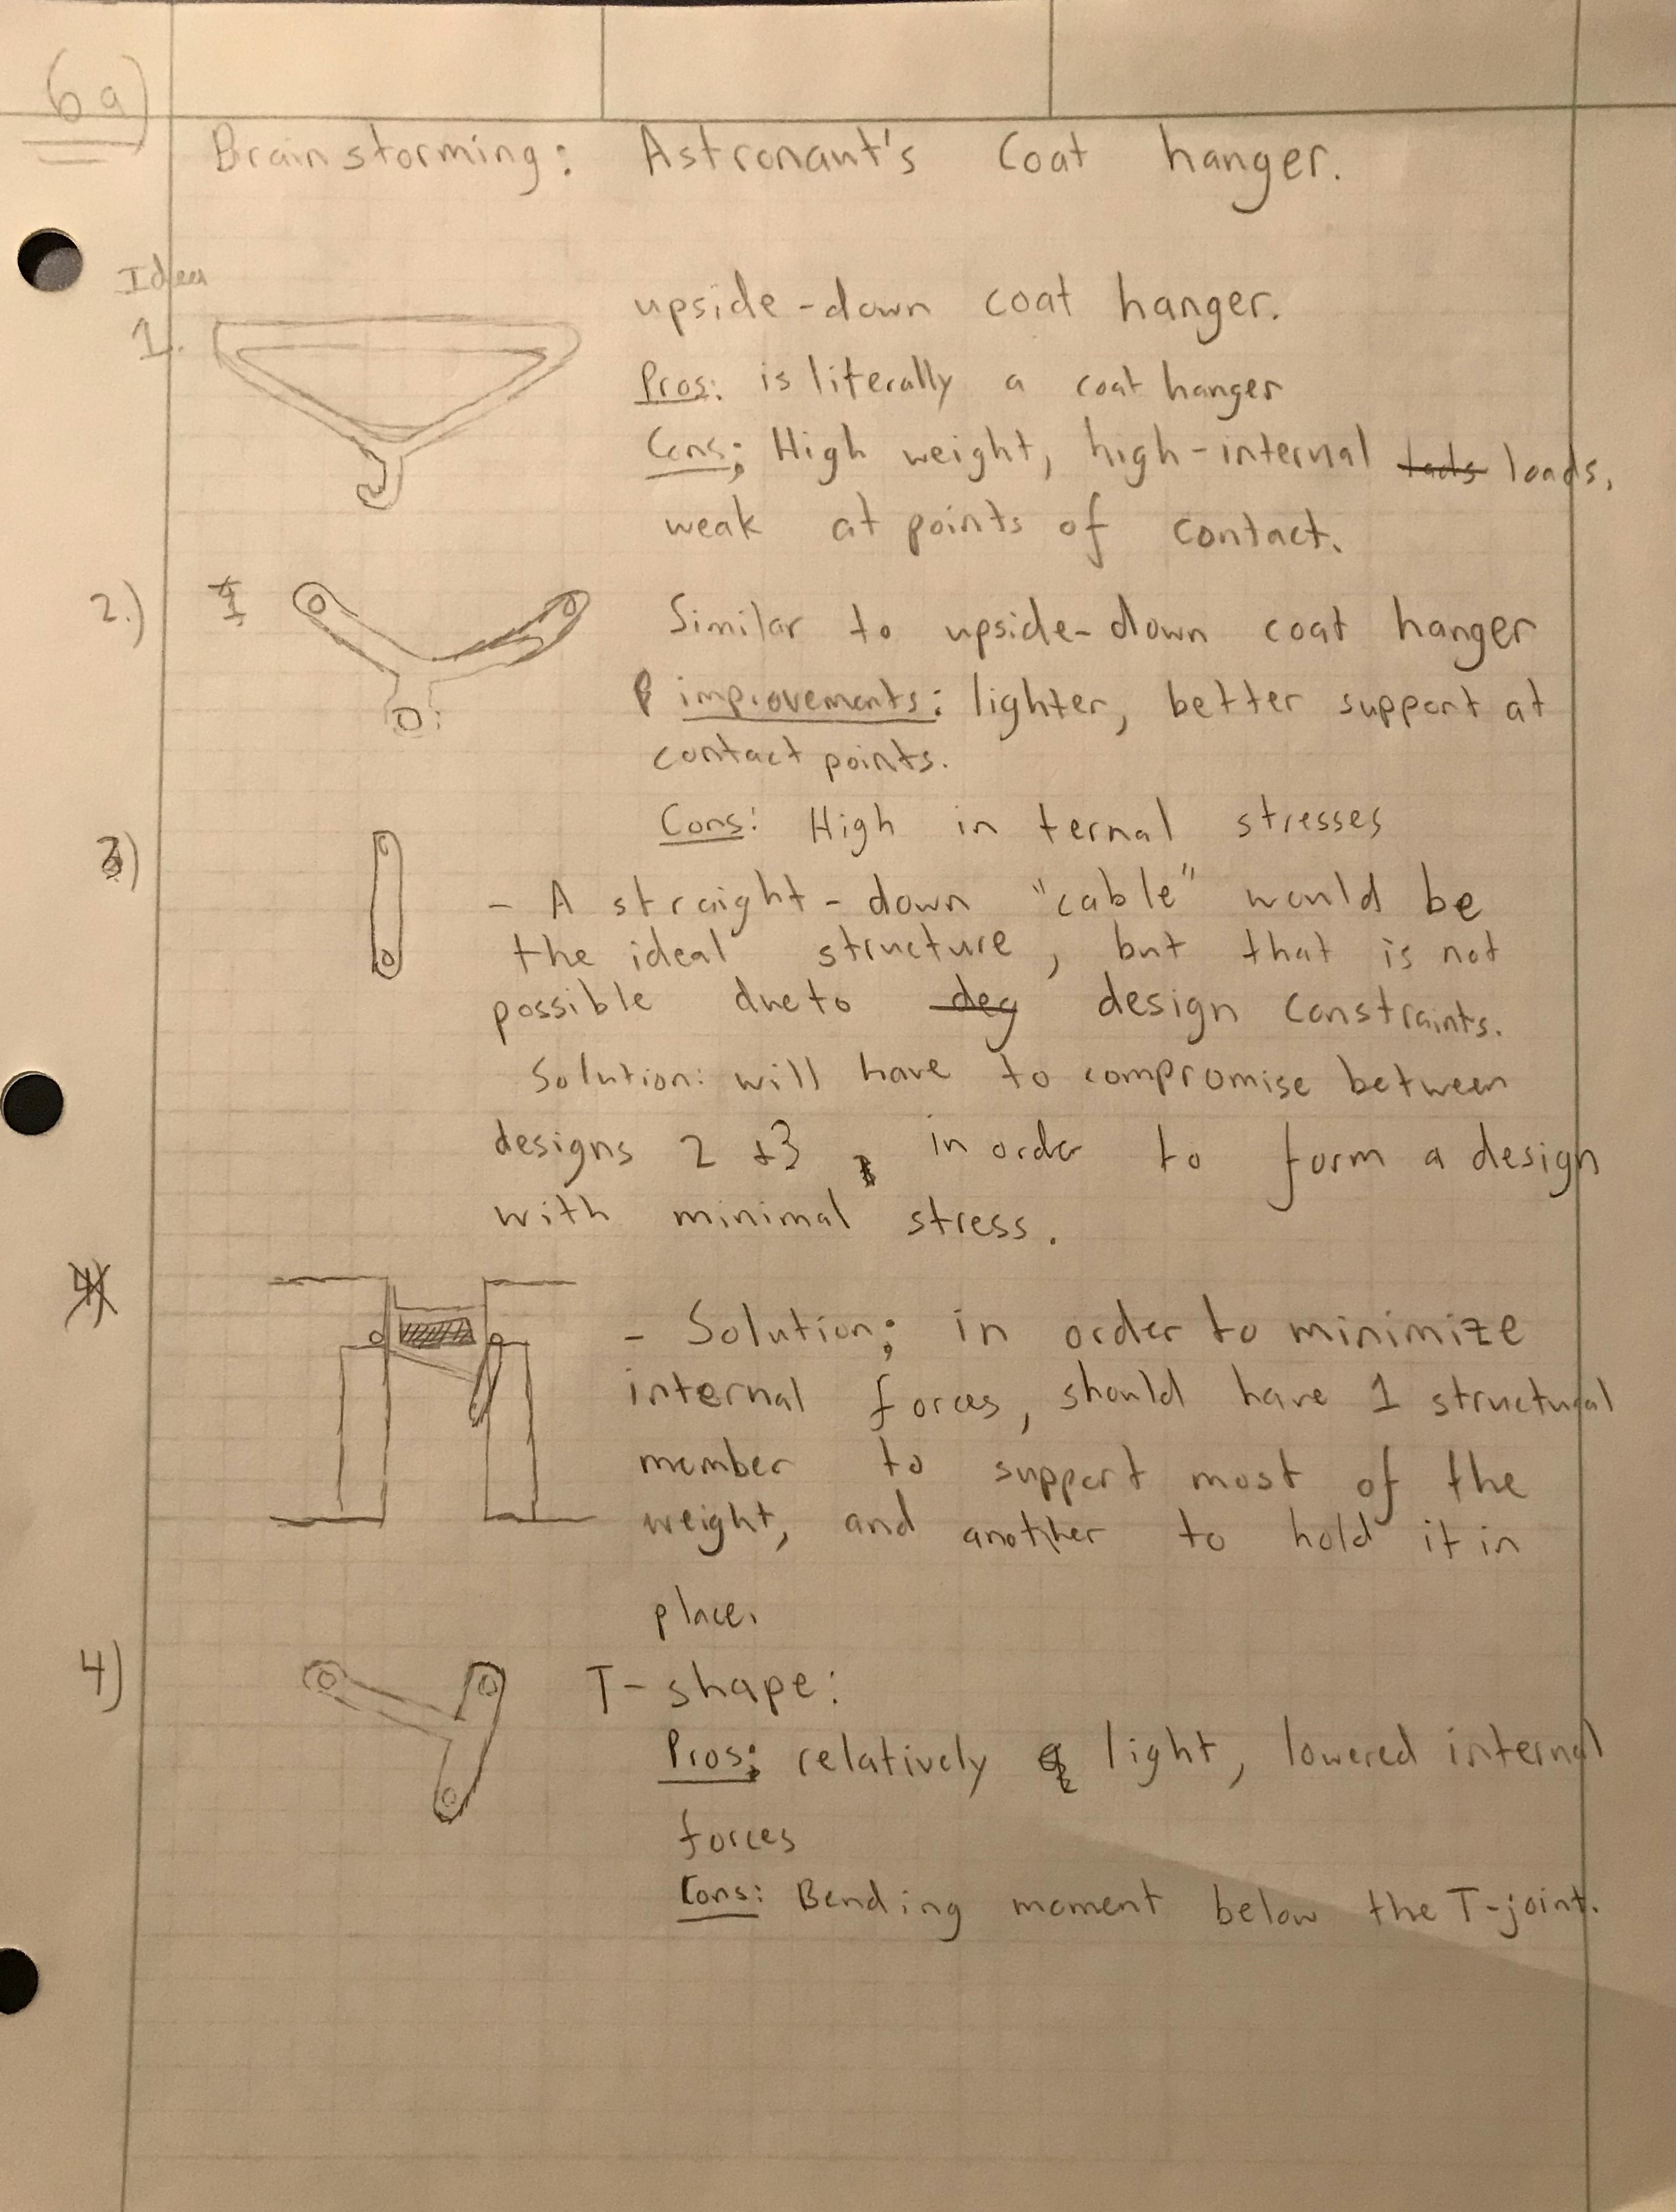 6a)
Brainstorming: Astronaut's Coat hanger.
Idea
1.
upside-down coat hanger.
Pros: is literally a coat hanger
Cons: High weight, high-internal loads,
weak at points of contact.
2.)
Similar to upside-down coat hanger
improvements: lighter, better support at
contact points.
Cons: High in ternal stresses
3)
- A straight-down "cable" would be
the ideal structure, but that is not
possible due to deg design constraints.
Solution: will have to compromise between
designs 2 +3 in order to form a design
with minimal stress.
4)
- Solution: in order to minimize
internal forces, should have 1 structural
member to support most of the
weight, and another to hold it in
place.
4)
T-shape:
Pros: relatively light, lowered internal
forces
Cons: Bending moment below the T-joint.